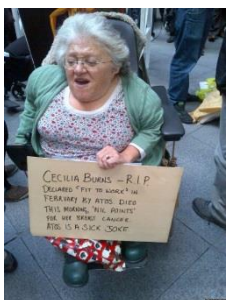 CECILIA BURNS - R.I.P
DECLARED "FIT TO WORK" IN
FEBRUARY BY ATOS DIED
THIS MORNING. 'NIL POINTS'
FOR HER BREAST CANCER.
ATOS IS A SICK JOKE